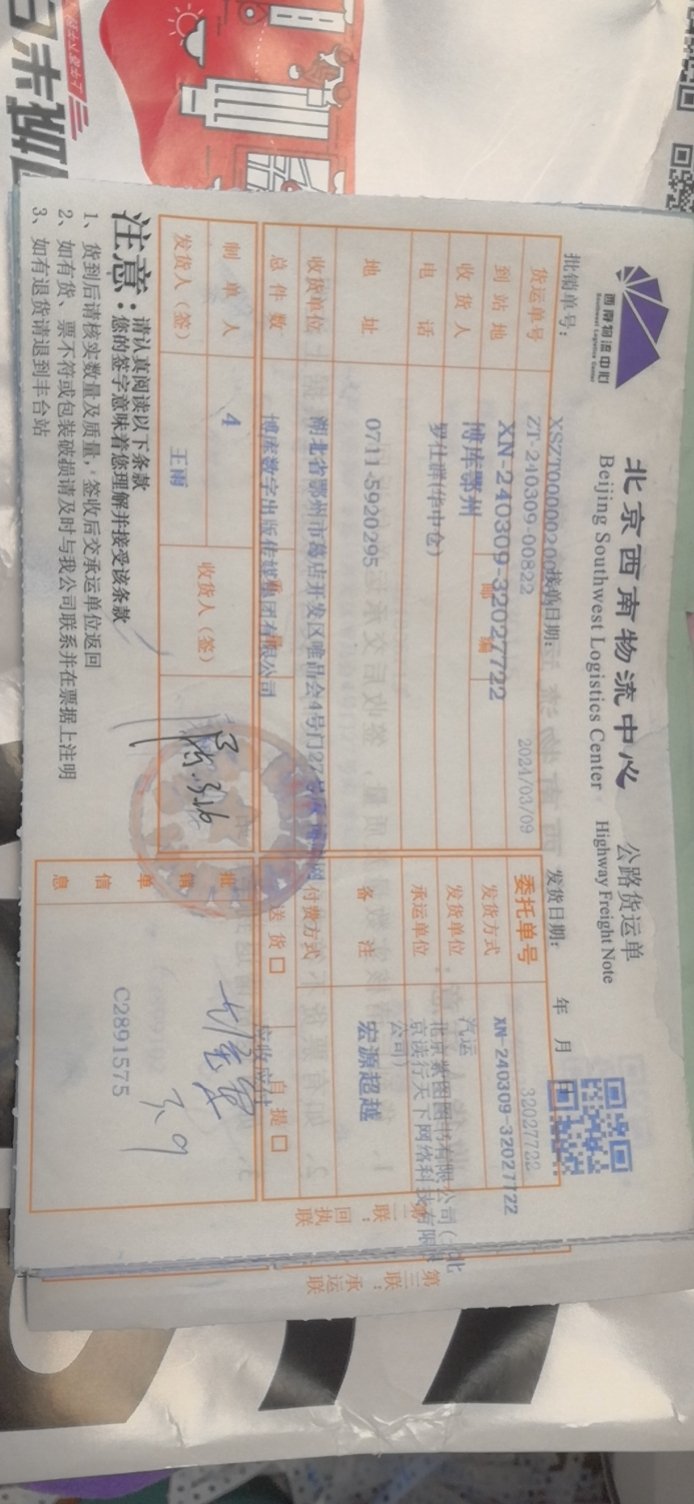 西南物流中心
Southwest Logistics Center
北京西南物流中心
公路货运单
Beijing Southwest Logistics Center
Highway Freight Note
批销单号：
接单日期：
2024/03/09
发货日期：
年 月 日
货运单号
ZT-240309-00822
委托单号
32027722
到站地
XN-240309-32027722
邮编
发货方式
XN-240309-32027722
收货人
博库鄂州
发货单位
汽运
电话
罗仕群(华中仓)
承运单位
地址
0711-5920295
备注
宏源超越
收货单位
湖北省鄂州市葛店开发区唯品会4号门27
付费方式
总件数
博库数字出版传媒集团有限公司
送货□
自提□
制单人
4
发货人（签）
王雨
收货人（签）
批销单信息
3.9
C2891575
注意：
请认真阅读以下条款
您的签字意味着您理解并接受该条款
1、货到后请核实数量及质量，签收后交承运单位返回
2、如有货、票不符或包装破损请及时与我公司联系并在票据上注明
3、如有退货请退到丰台站
联：回执联
第三联：承运联